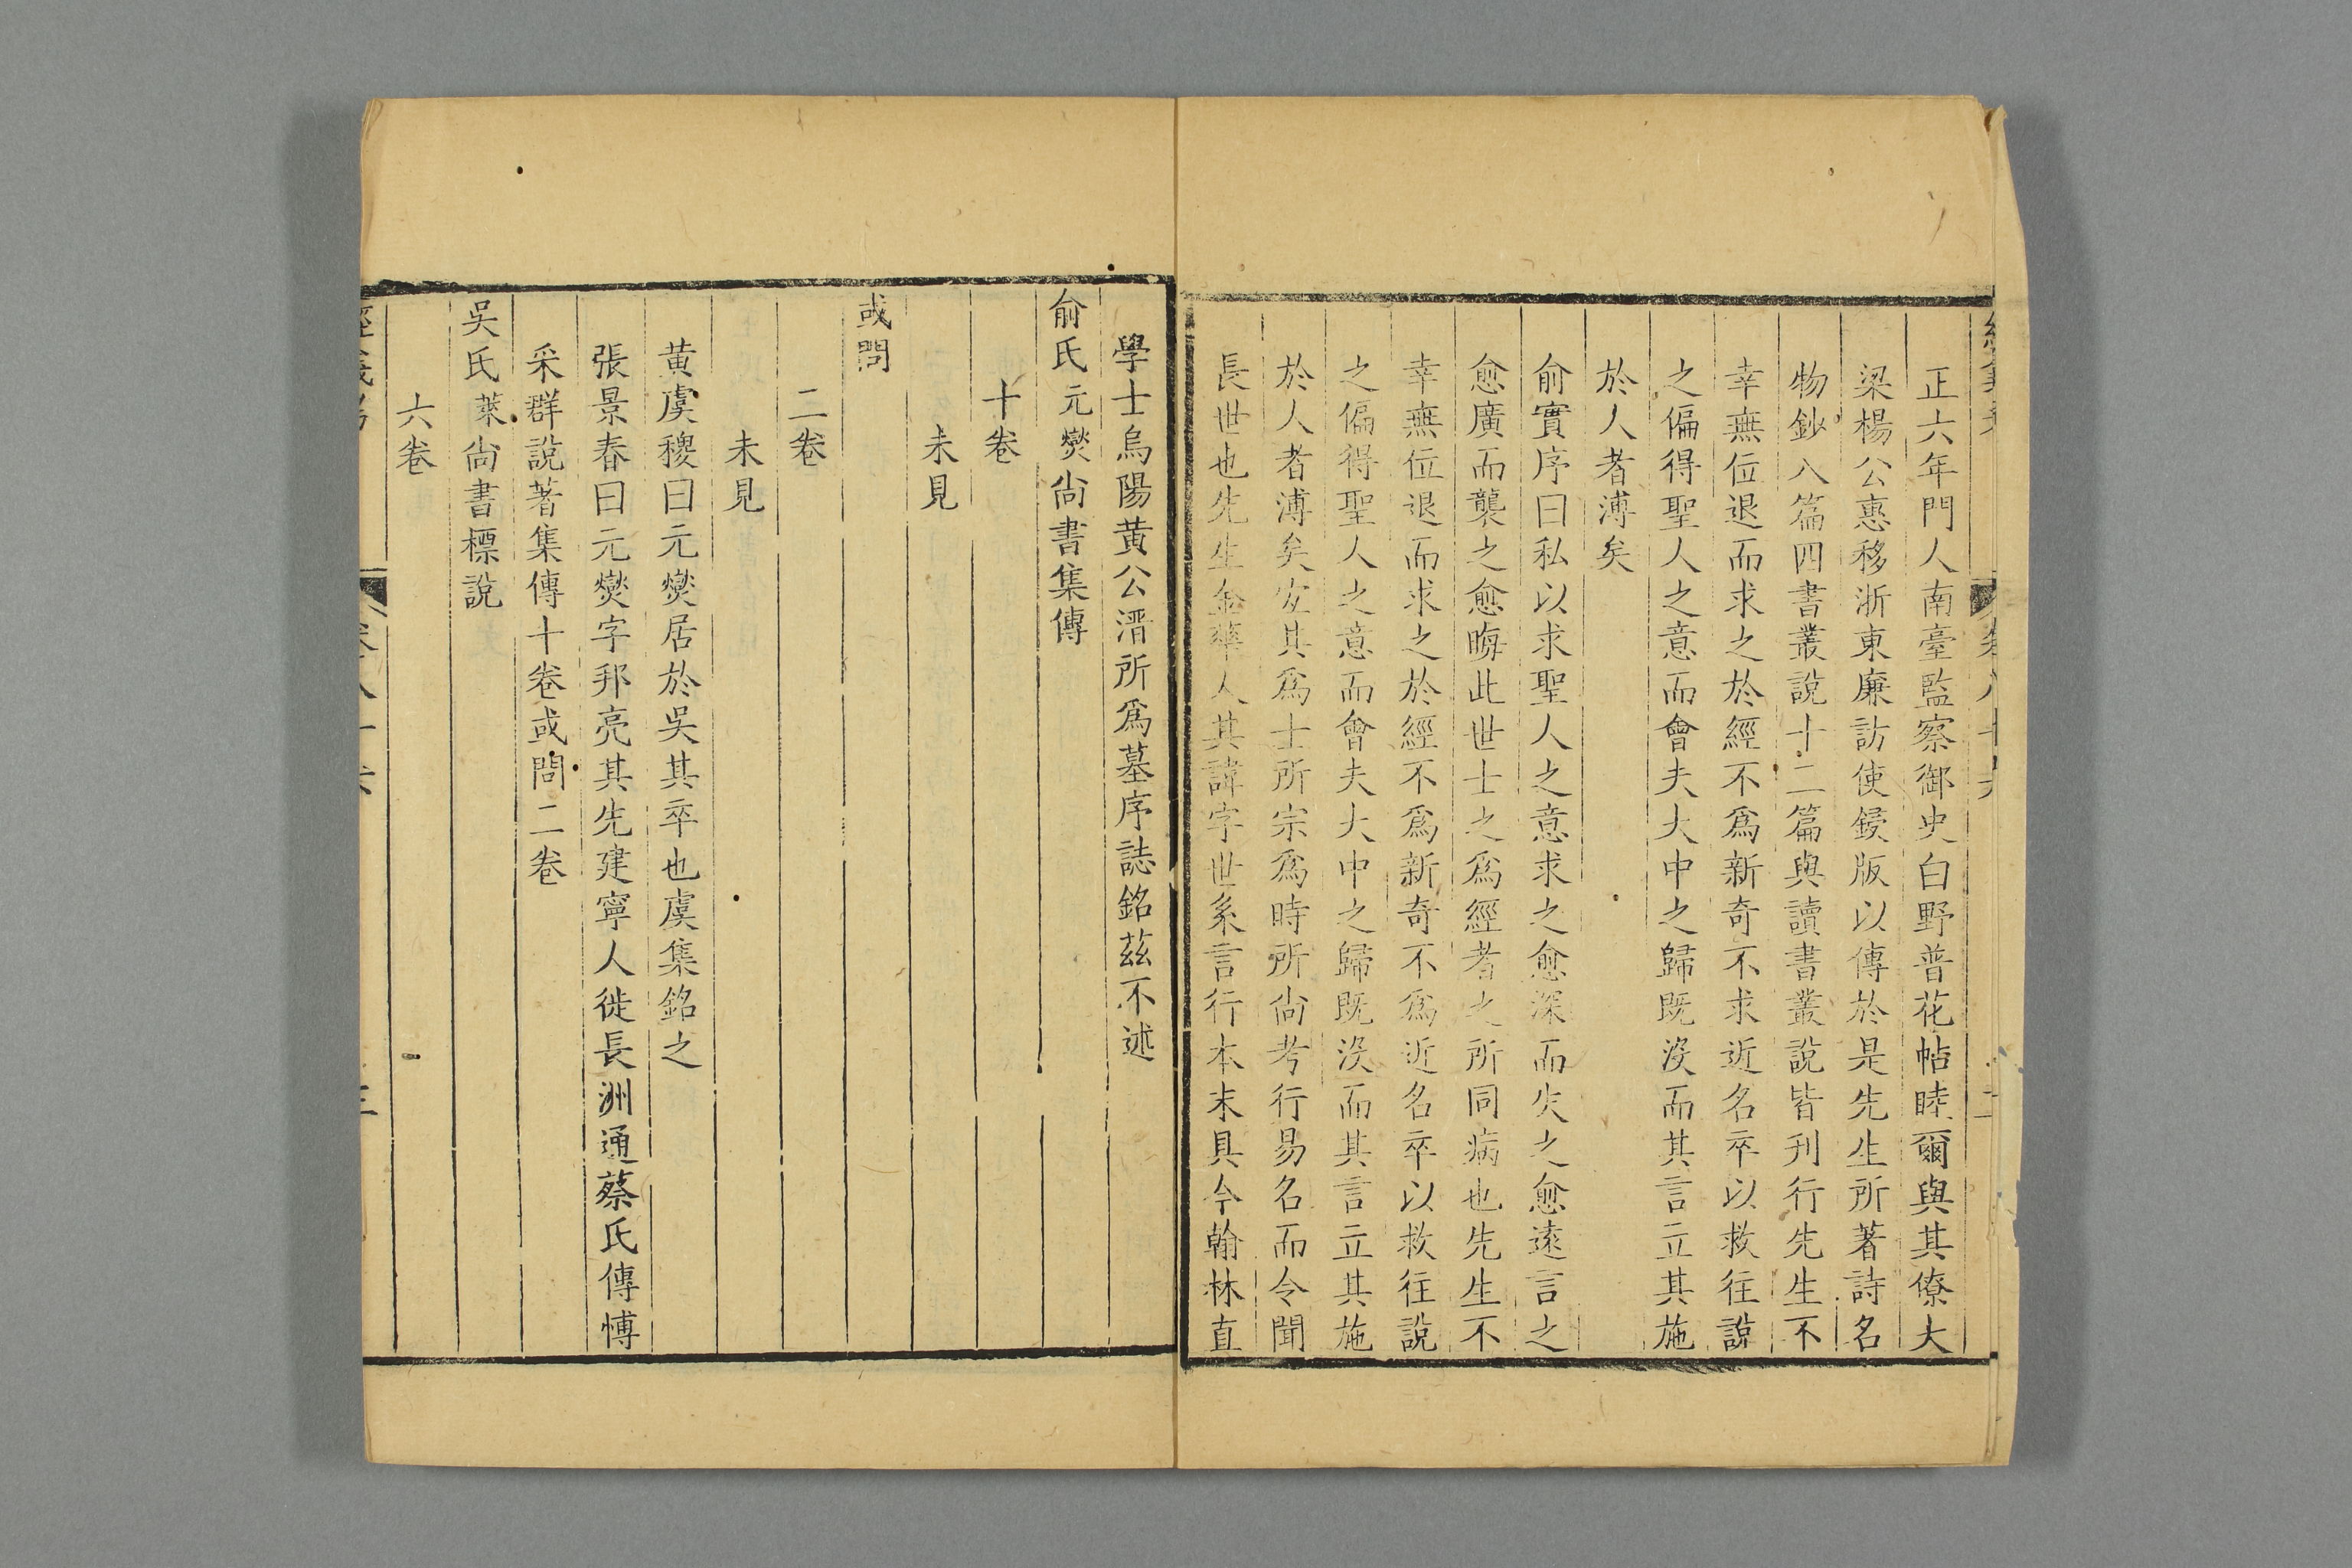 正六年門人南臺監察御史白野普花帖睦爾與其僚大
梁楊公惠移浙東廉訪使鋟版以傳於是先生所著詩名
物鈔八篇四書叢說十二篇與讀書叢說皆刊行先生不
幸無位退而求之於經不爲新奇不求近名卒以救往說
之偏得聖人之意而會夫大中之歸既沒而其言立其施
於人者溥矣
俞實序曰私以求聖人之意求之愈深而失之愈遠言之
愈廣而襲之愈晦此世士之爲經者之所同病也先生不
幸無位退而求之於經不爲新奇不爲近名卒以救往說
之偏得聖人之意而會夫大中之歸既沒而其言立其施
於人者溥矣宜其爲士所宗爲時所尚考行易名而令聞
長世也先生金華人其諱字世系言行本末具今翰林直
學士烏陽黃公溍所爲墓序誌銘茲不述
俞氏元燮尚書集傳
十卷
未見
或問
二卷
未見
黃虞稷曰元燮居於吳其卒也虞集銘之
張景春曰元燮字邦亮其先建寧人徙長洲通蔡氏傳博
采群說著集傳十卷或問二卷
吳氏萊尚書標說
六卷